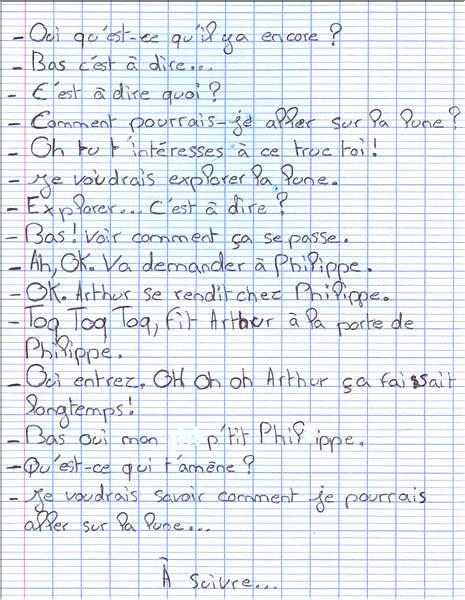 - Oui qu'est-ce qu'il y a encore ?
- Bas c'est à dire...
- C'est à dire quoi ?
- Comment pourrais-je aller sur la lune ?
- Oh tu t'intéresses à ce truc toi !
- Je voudrais explorer la lune.
- Explorer... C'est à dire ?
- Bas ! Voir comment ça se passe.
- Ah, OK. Va demander à Philippe.
- OK. Arthur se rendit chez Philippe.
- Toq Toq Toq, fit Arthur à la porte de
Philippe.
- Oui entrez, OH Oh oh Arthur ça faissait
longtemps !
- Bas oui mon p'tit Philippe.
- Qu'est-ce qui t'amène ?
- Je voudrais savoir comment je pourrais
aller sur la lune...
À suivre...